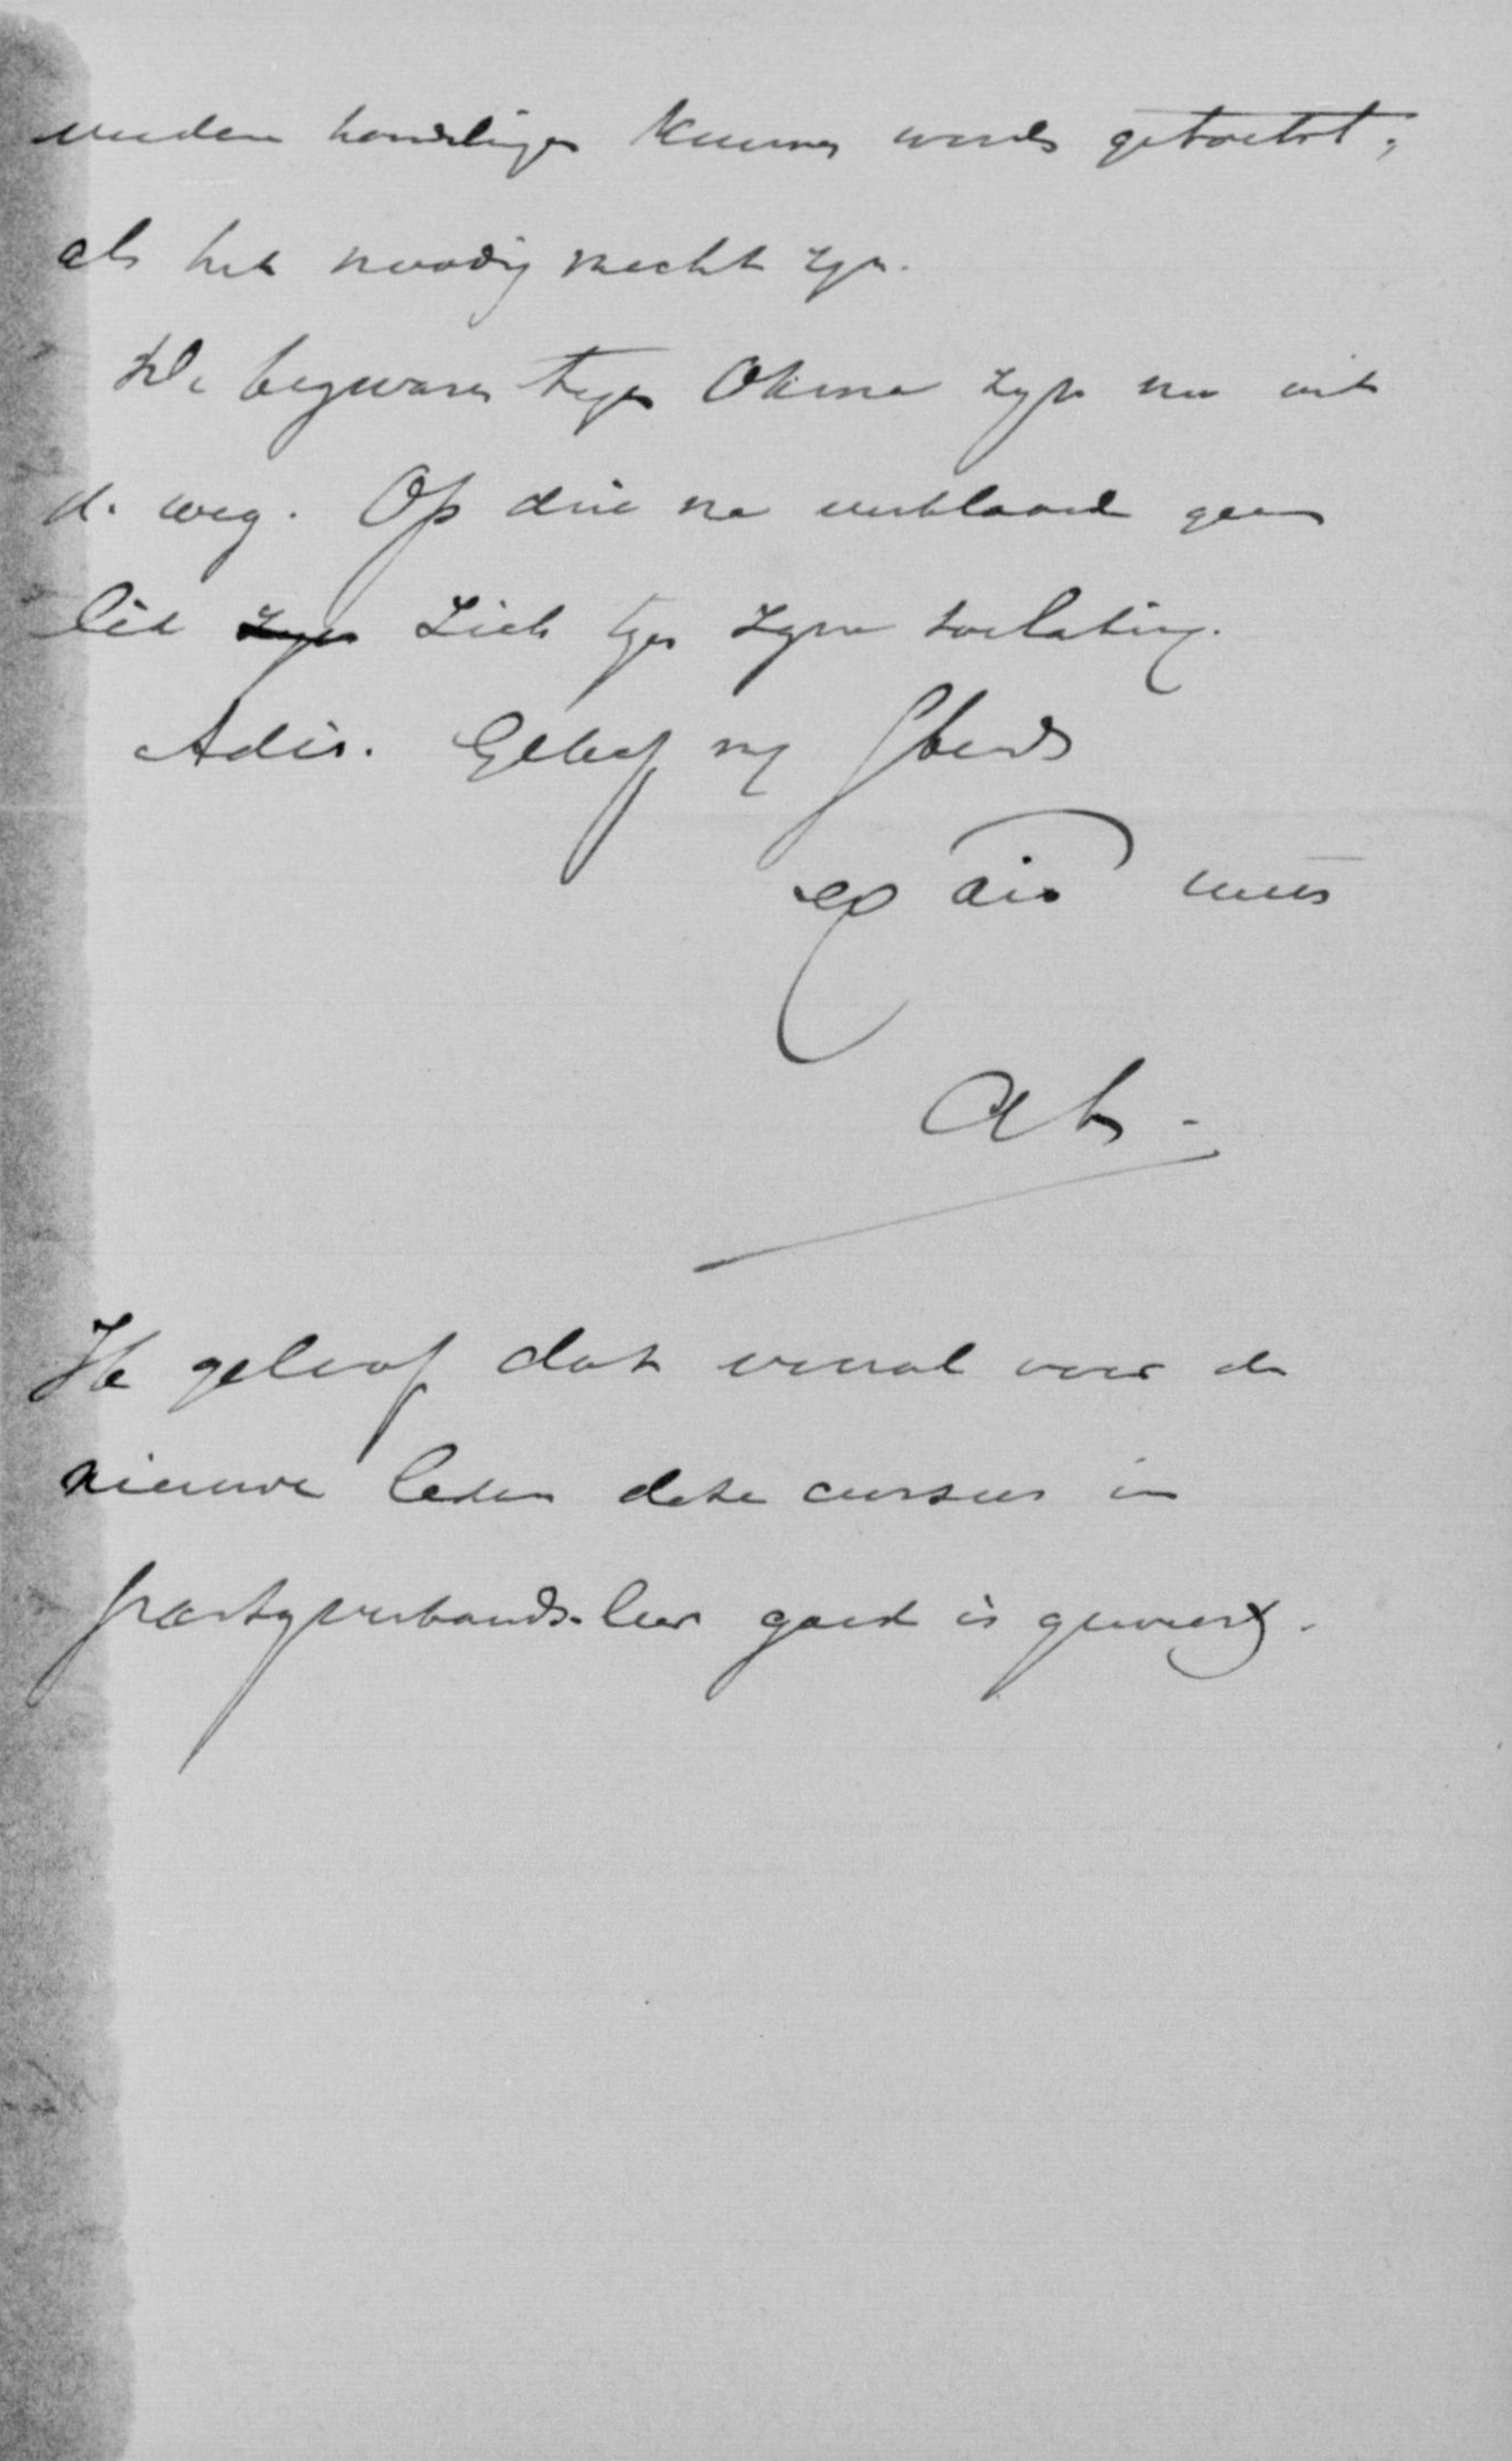 verdere handelingen kunnen worden getoetst,
als het noodig mocht zyn.
De bezwaren tegen Okma zyn nu uit
de weg. Op drie na verklaard geen
lid zich tegen zyne toelating.
Adio. Geloof my steeds
ex animo tuus
AK.
Ik geloof dat vooral voor de
nieuwe leden deze cursus in
partyverbands-leer goed is geweest.